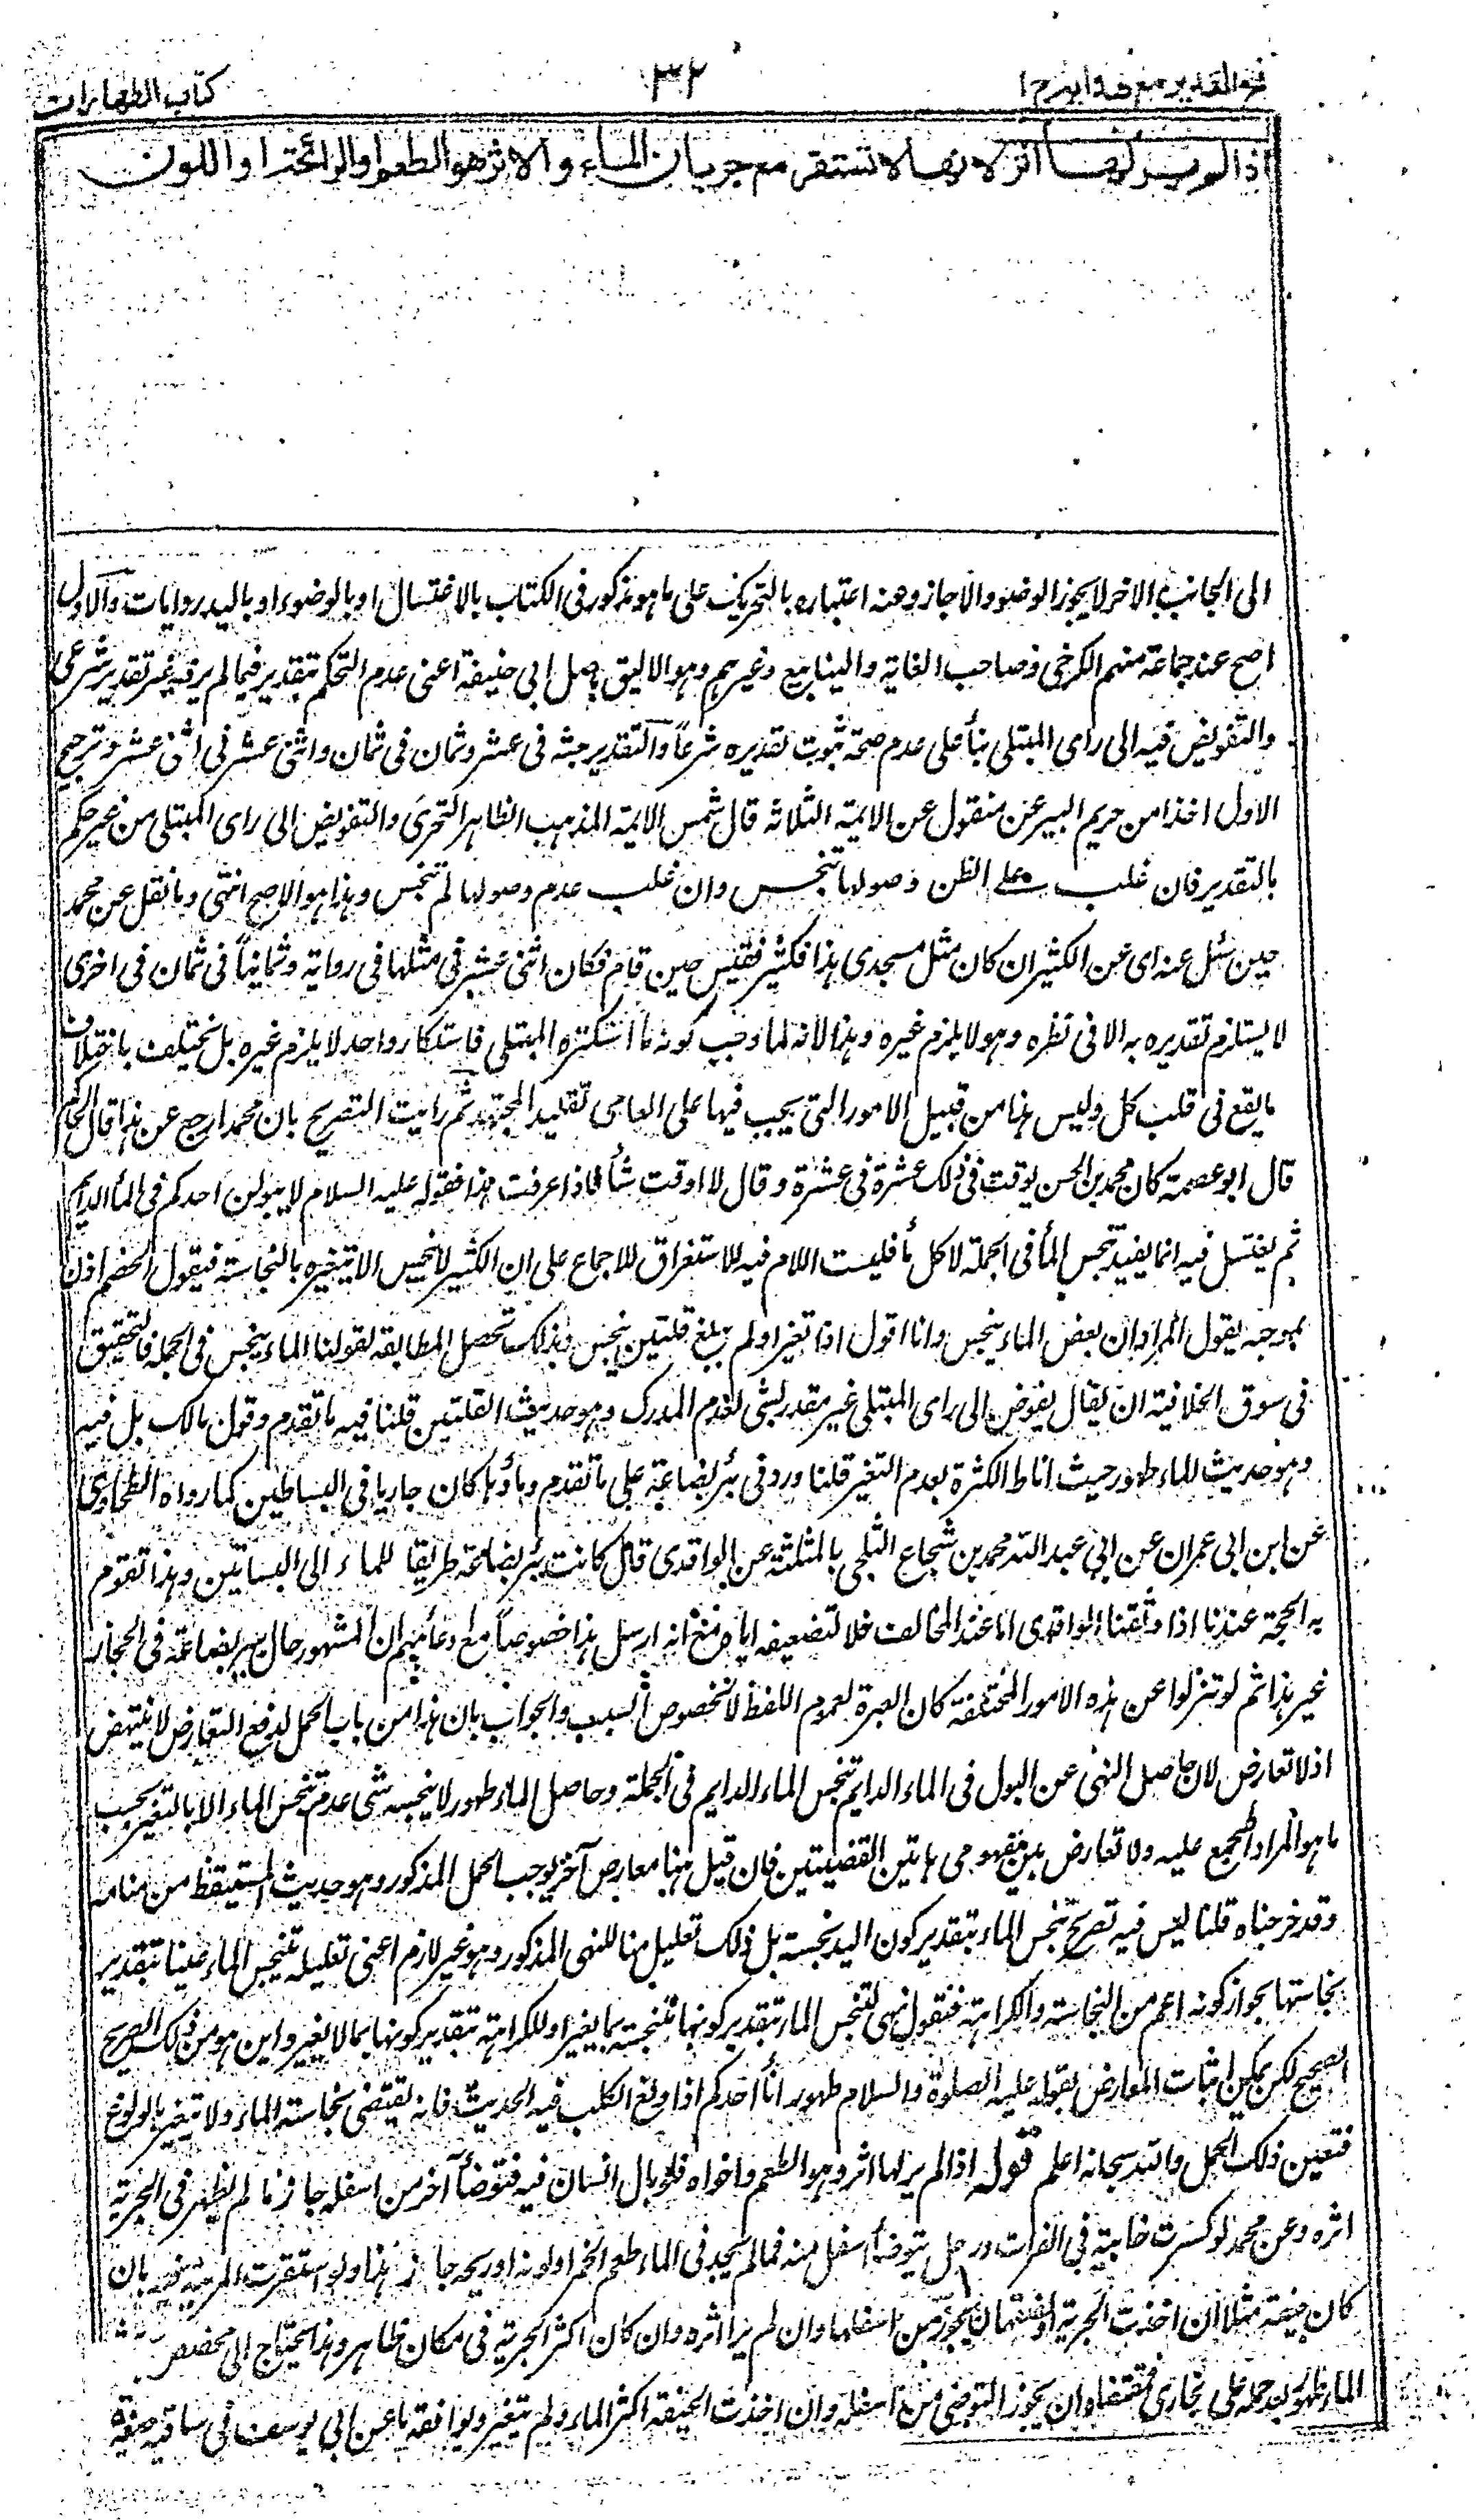 فتح القدير مع هدايه ج ١
٣٢
كتاب الطهارات
اذا لم ير لها اثر لانها لا تستقر مع جريان الماء والاثر هو الطعم او الرائحة او اللون
الى الجانب الاخر لا يجوز الوضوء والا جاز وعنه اعتباره بالتحريك على ما هو مذكور فى الكتاب بالاغتسال او بالوضوء او باليد روايات والاول
اصح عند جماعة منهم الكرخى وصاحب الغاية والينابيع وغيرهم وهو الاليق باصل ابى حنيفة اعنى عدم التحكم بتقدير فيما لم يرد فيه تقدير شرعى
والتفويض فيه الى راى المبتلى بناً على عدم صحة ثبوت تقديره شرعاً والتقدير بعشر فى عشر وثمان فى ثمان واثنى عشر فى اثنى عشر وترجيح
الاول اخذا من حريم البير غير منقول عن الايمة الثلاثة قال شمس الايمة المذهب الظاهر التحرى والتفويض الى راى المبتلى من غير حكم
بالتقدير فان غلب على الظن وصولها تنجس وان غلب عدم وصولها لم تنجس وهذا هو الاصح انتهى وما نقل عن محمد
حين سئل عنه اى عن الكثير ان كان مثل مسجدى هذا فكثير فقيس حين قام فكان اثنى عشر فى مثلها فى رواية وثمانياً فى ثمان فى اخرى
لا يستلزم تقديره به الا فى نظره وهو لا يلزم غيره وهذا لانه لما وجب كونه ما استكثره المبتلى فاستكثار واحد لا يلزم غيره بل يختلف باختلاف
ما يقع فى قلب كل وليس هذا من قبيل الامور التى يجب فيها على العامى تقليد المجتهد ثم رايت التصريح بان محمدا رجع عن هذا قال الحاكم
قال ابو عصمة كان محمد بن الحسن يوقت فى ذلك عشرة فى عشرة وقال لا اوقت شأ فاذا عرفت هذا فقوله عليه السلام لا يبولن احدكم فى الماً الدايم
ثم يغتسل فيه انما يفيد تنجس الماً فى الجملة لا كل ماً فليست اللام فيه للاستغراق للاجماع على ان الكثير لا ينجس الا بتغيره بالنجاسة فيقول الخصم اذن
بموجبه يقول المراد ان بعض الماء ينجس وانا اقول اذا تغير او لم يبلغ قلتين ينجس وبذلك تحصل المطابقة لقولنا الماء ينجس فى الجملة فالتحقيق
فى سوق الخلافية ان يقال يفوض الى راى المبتلى غير مقدر بشى لعدم المدرك وهو حديث القلتين قلنا فيه ما تقدم وقول مالك بل فيه
وهو حديث الماء طهور حيث اناط الكثرة بعدم التغير قلنا ورد فى بئر بضاعة على ما تقدم وماؤها كان جاريا فى البساطين كما رواه الطحاوى
عن ابن ابى عمران عن ابى عبد الله محمد بن شجاع الثلجى بالمثلثة عن الواقدى قال كانت بئر بضاعة طريقا للماء الى البساتين وهذا تقوم
به الحجة عندنا اذا وثقنا الواقدى اما عند المخالف فلا لتضعيفه اياه مع انه ارسل هذا خصوصاً مع ادعائهم ان المشهور حال بير بضاعة فى الحجاز
غير هذا ثم لو تنزلوا عن هذه الامور المختلفة كان العبرة لعموم اللفظ لا لخصوص السبب والجواب بان هذا من باب الحمل لدفع التعارض لا ينتهض
اذ لا تعارض لان حاصل النهى عن البول فى الماء الدايم تنجس الماء الدايم فى الجملة وحاصل الماء طهور لا ينجسه شى عدم تنجس الماء الا بالتغير بحسب
ما هو المراد المجمع عليه ولا تعارض بين مفهومى هاتين القضيتين فان قيل هنا معارض آخر يوجب الحمل المذكور وهو حديث المستيقظ من منامه
وقد خرجناه قلنا ليس فيه تصريح بتنجس الماء بتقدير كون اليد نجسة بل ذلك تعليل منا للنهى المذكور وهو غير لازم اعنى تعليله بتنجس الماء عينا بتقدير
نجاستها بجواز كونه اعم من النجاسة والكراهة فنقول نهى لتنجس الماء بتقدير كونها متنجسة بما يغير او للكراهة بتقدير كونها بما لا يغير واين هو من ذلك الصريح
الصحيح لكن يمكن اثبات المعارض بقوله عليه الصلوة والسلام طهور اناً احدكم اذا ولغ الكلب فيه الحديث فانه يقتضى نجاسة الماء ولا تغير بالولوغ
فتعين ذلك الحمل والله سبحانه اعلم قوله اذا لم ير لها اثر وهو الطعم واخواه فلو بال انسان فيه فتوضأ آخر من اسفله جاز ما لم يظهر فى الجرية
اثره وعن محمد لو كسرت خابية فى الفرات ورجل يتوضأ اسفل منه فما لم يجد فى الماء طعم الخمر او لونه او ريحه جاز هذا ولو استقرت المرئية فيه بان
كان جيفة مثلا ان اخذت الجرية او نصفها لا يجوز من اسفلها وان لم ير اثره وان كان اكثر الجرية فى مكان طاهر وهذا يحتاج الى مخصص
الماء طهور بعد حمله على الجارى فمقتضاه ان يجوز التوضى من اسفله وان اخذت الجيفة اكثر الماء ولم يتغير ويوافقه ما عن ابى يوسف فى ساقية صغيرة